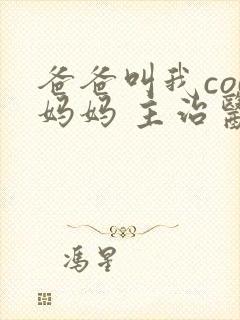 爸爸叫我co
妈妈 主治
冯星